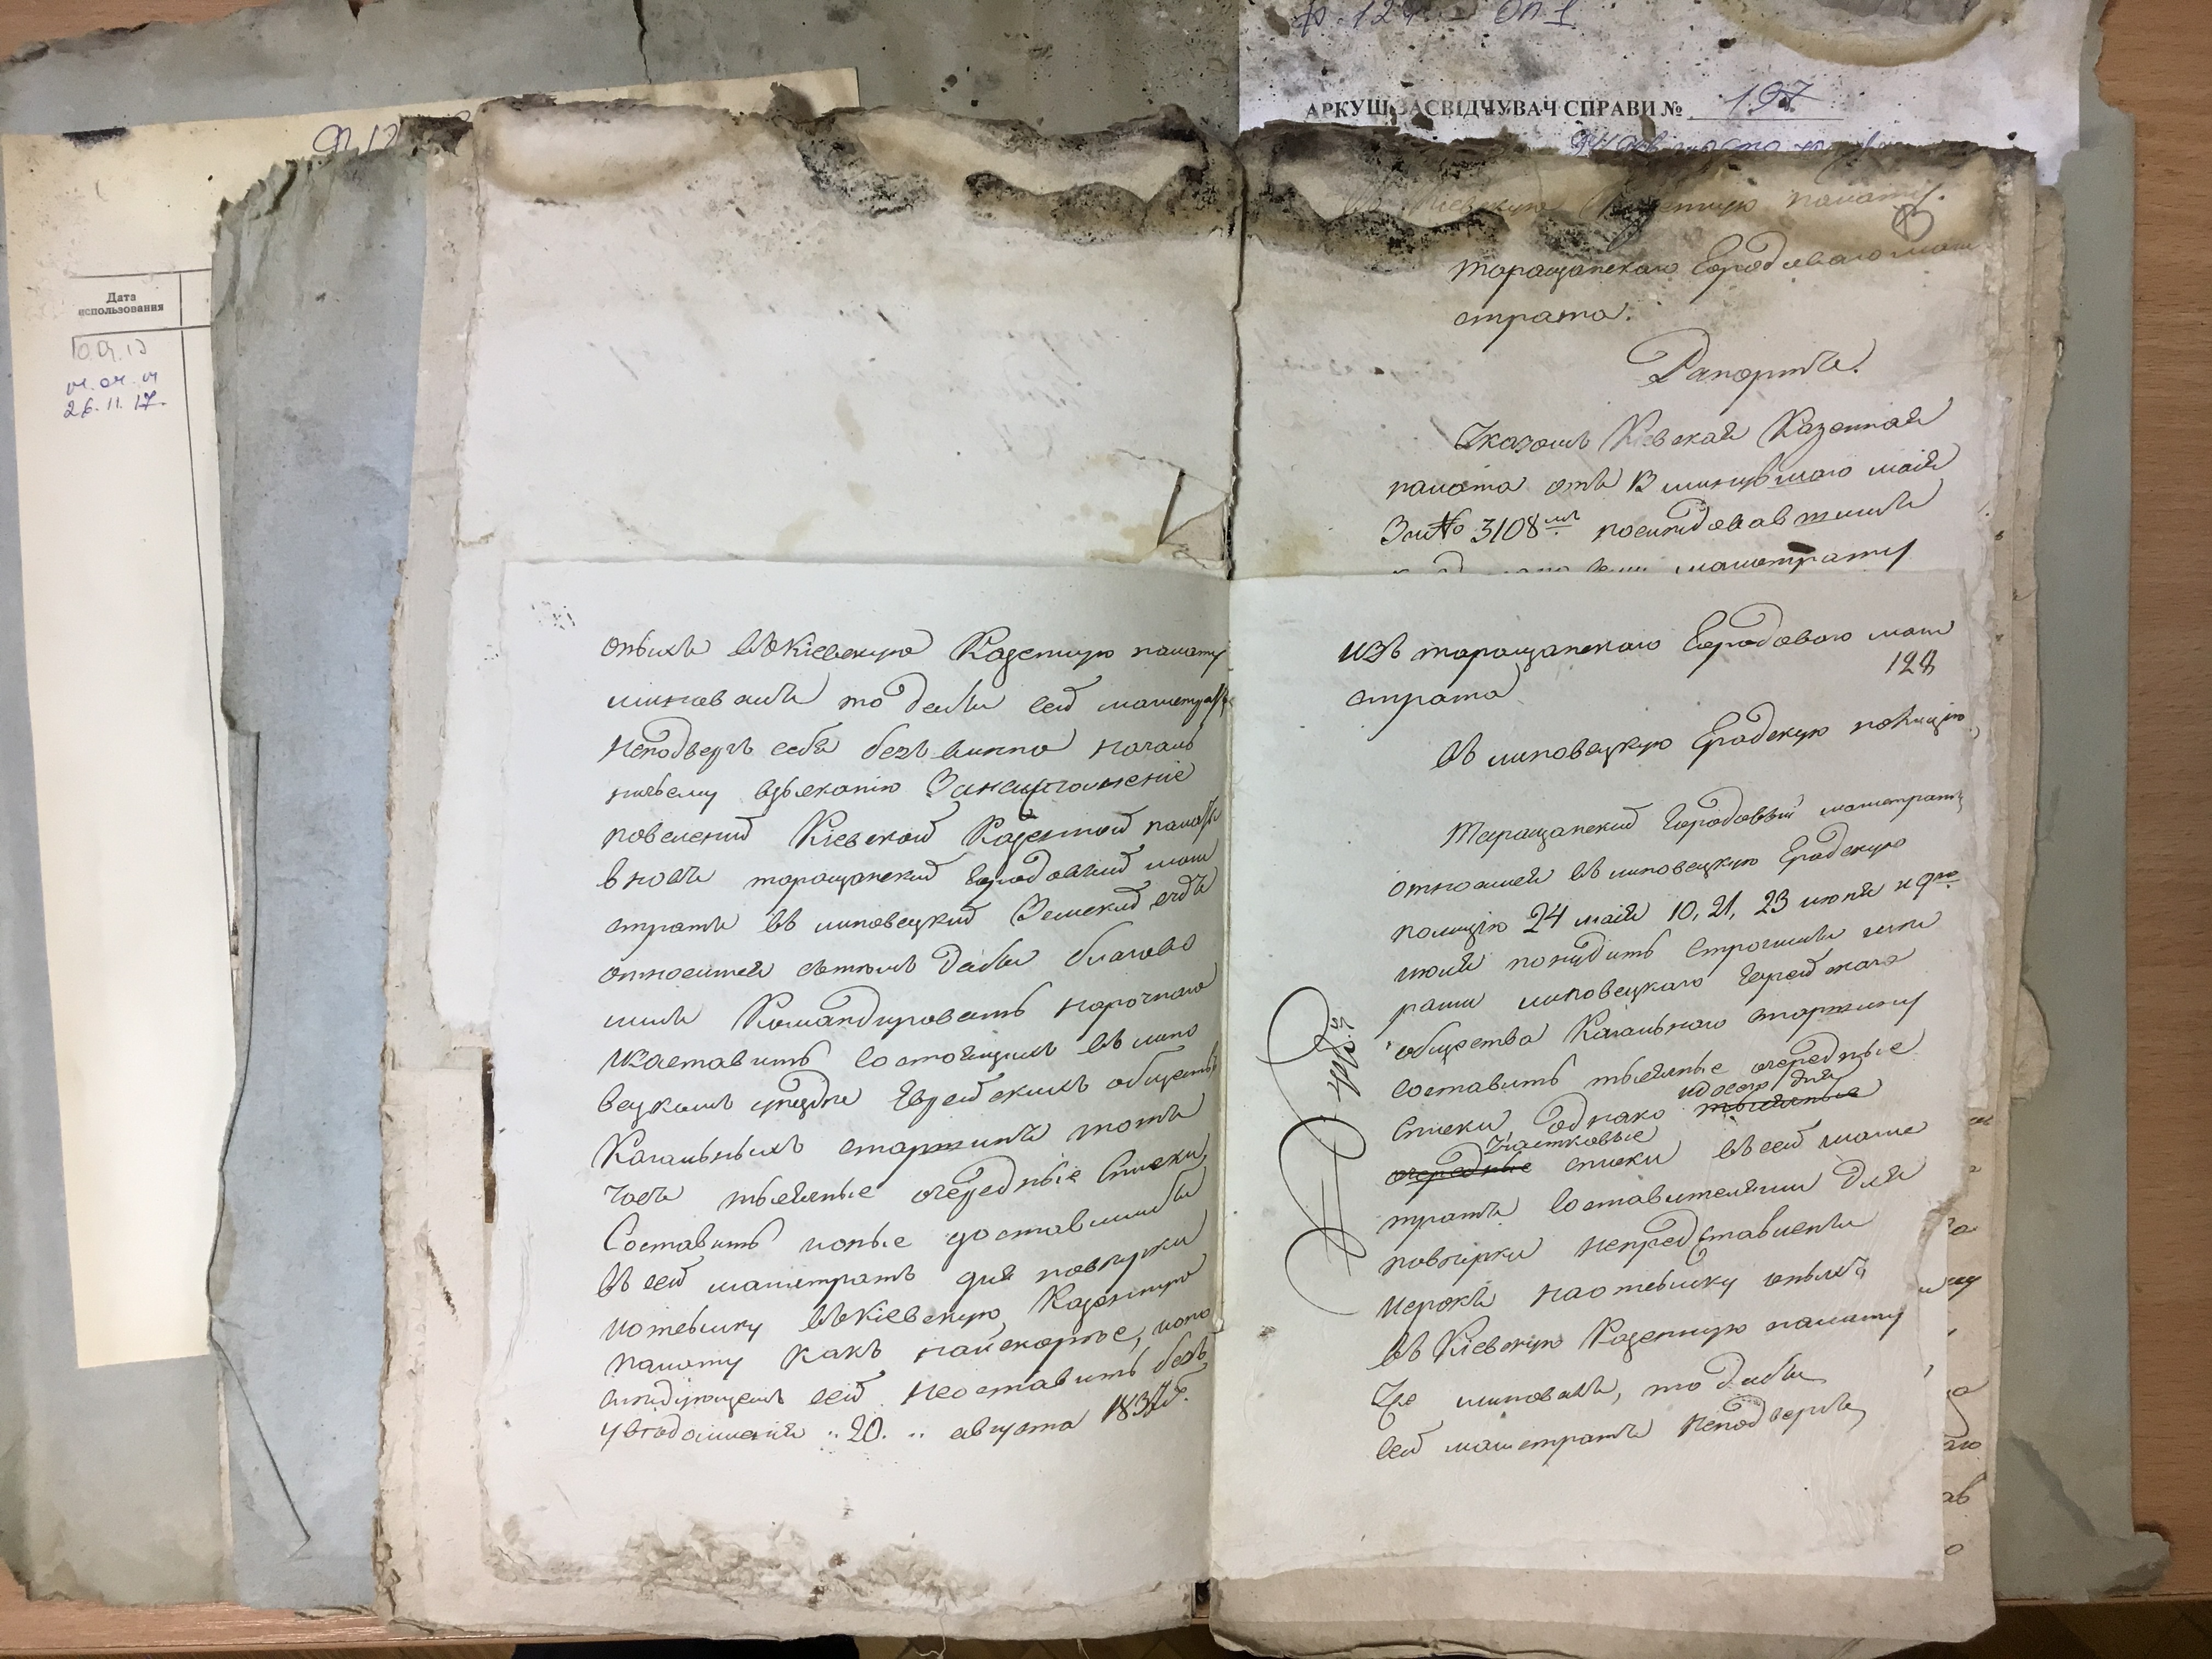 Ф. 129 оп 1
АРКУШ ЗАСВІДЧУВАЧ СПРАВИ № 197
Дата
использования
26.11.17.
Кіевскую Казенную палату.
таращанскаго Городоваго маги
страта.
Рапортъ.
Указомъ Кіевская Казенная
палата отъ 13 минувшаго маія
За № 3108мъ последовавшимъ
магистрату
оныхъ въ Кіевскую Казенную палату
миновалъ то дабы сей магистратъ
неподвергъ себя безъ винно началь
ничьему взысканію За неисполненіе
повелений Кіевской Казенной палаты
вновь таращанский Городовый маги
стратъ въ липовецкий Земский судъ
относится сътемъ дабы благово
лилъ Командировать нарочнаго
Кзаставить состоящихъ въ липо
вецкомъ уезде Еврейскихъ обществъ
Кагальныхъ старшинъ тотъ
часъ тысячные очередные Списки
Составить ионые доставилибы
въ сей магистратъ для поверки
иотсылку въ Кіевскую Казенную
палату какъ найскорее, ипо
следующемъ сей неоставить безъ
уведомленія ..20. .. августа 1837 г.
изъ таращанскаго Городоваго маги
128
страта
въ липовецкую Градскую полицію
Таращанский Городовый магистратъ
относился въ липовецкую Градскую
полицію 24 маія 10, 21, 23 июня и 9го
июля понудить строгими мѣ
рами липовецкаго Еврейскаго
общества Кагальнаго старшину
составить тысячные очередные
списки, однако идосего дня тысячные
очередные Участковые списки въ сей маги
стратъ Составителями для
поверки непредставлены
исрокъ наотсылку оныхъ
въ Кіевскую Казенную палату
Уже миновалъ, то дабы
сей магистратъ неподвергъ